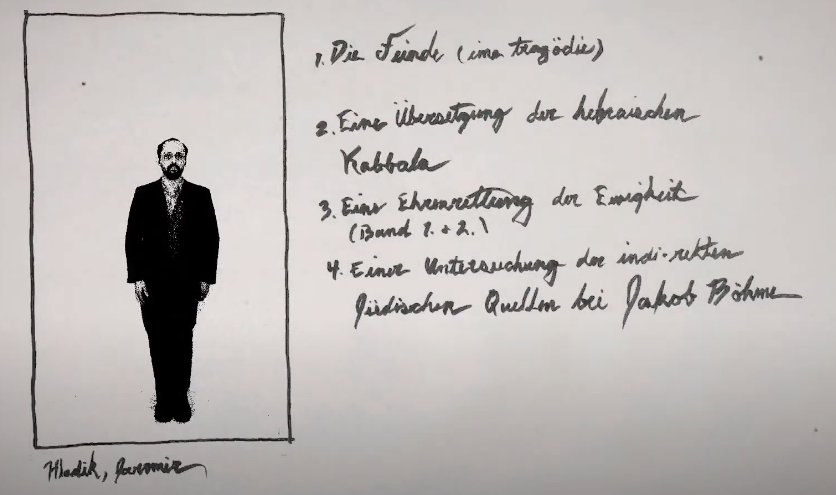 1. Die Feinde (eine tragödie)
2. Eine Übersetzung der hebraischen
Kabbala
3. Eine Ehrenrettung der Ewigkeit
(Band 1. + 2.)
4. Einer Untersuchung der indi-rekten
Jüdischen Quellen bei Jakob Böhme
Hladik, Jaromir